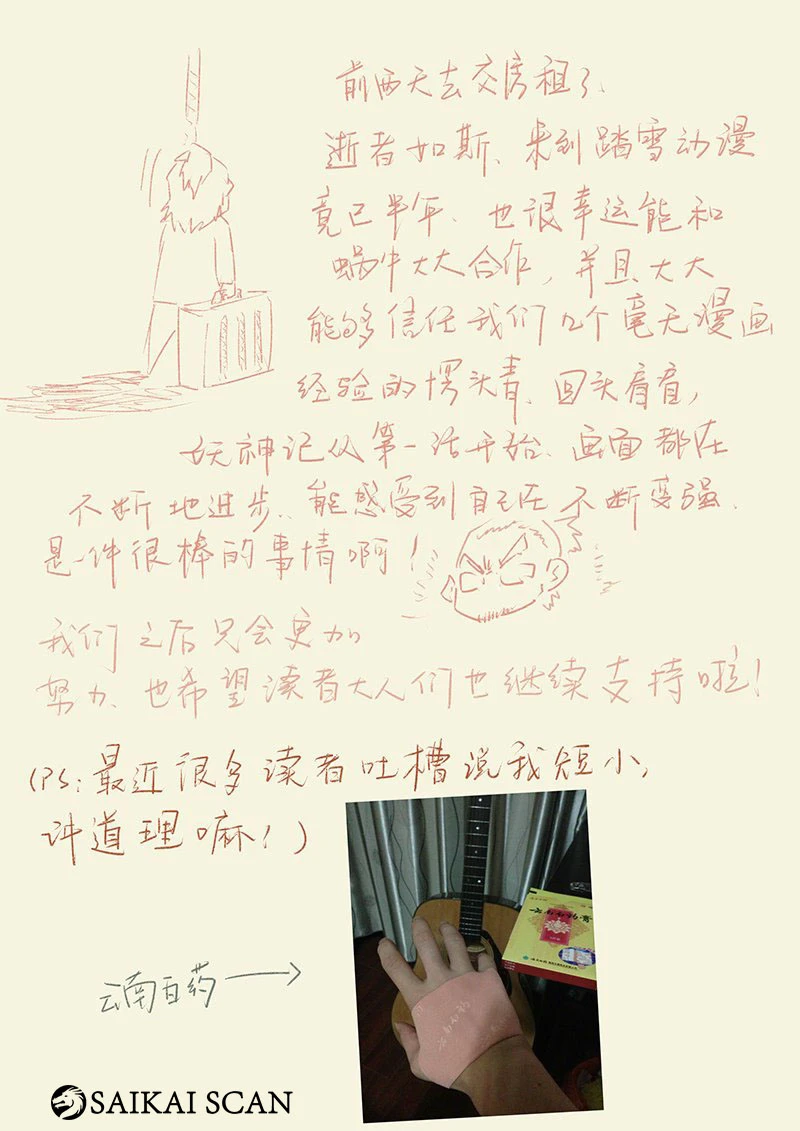 前两天去交房租了、
逝者如斯、来到踏雪动漫
竟已半年、也很幸运能和
蜗牛大大合作，并且大大
能够信任我们几个毫无漫画
经验的愣头青、回头看看，
妖神记从第一话开始、画面都在
不断地进步、能感受到自己在不断变强、
是一件很棒的事情啊！
我们之后只会更加
努力、也希望读者大人们也继续支持啦！
(PS:最近很多读者吐槽说我短小，
讲道理嘛！)
云南白药
云南白药膏
云南白药
SAIKAI SCAN